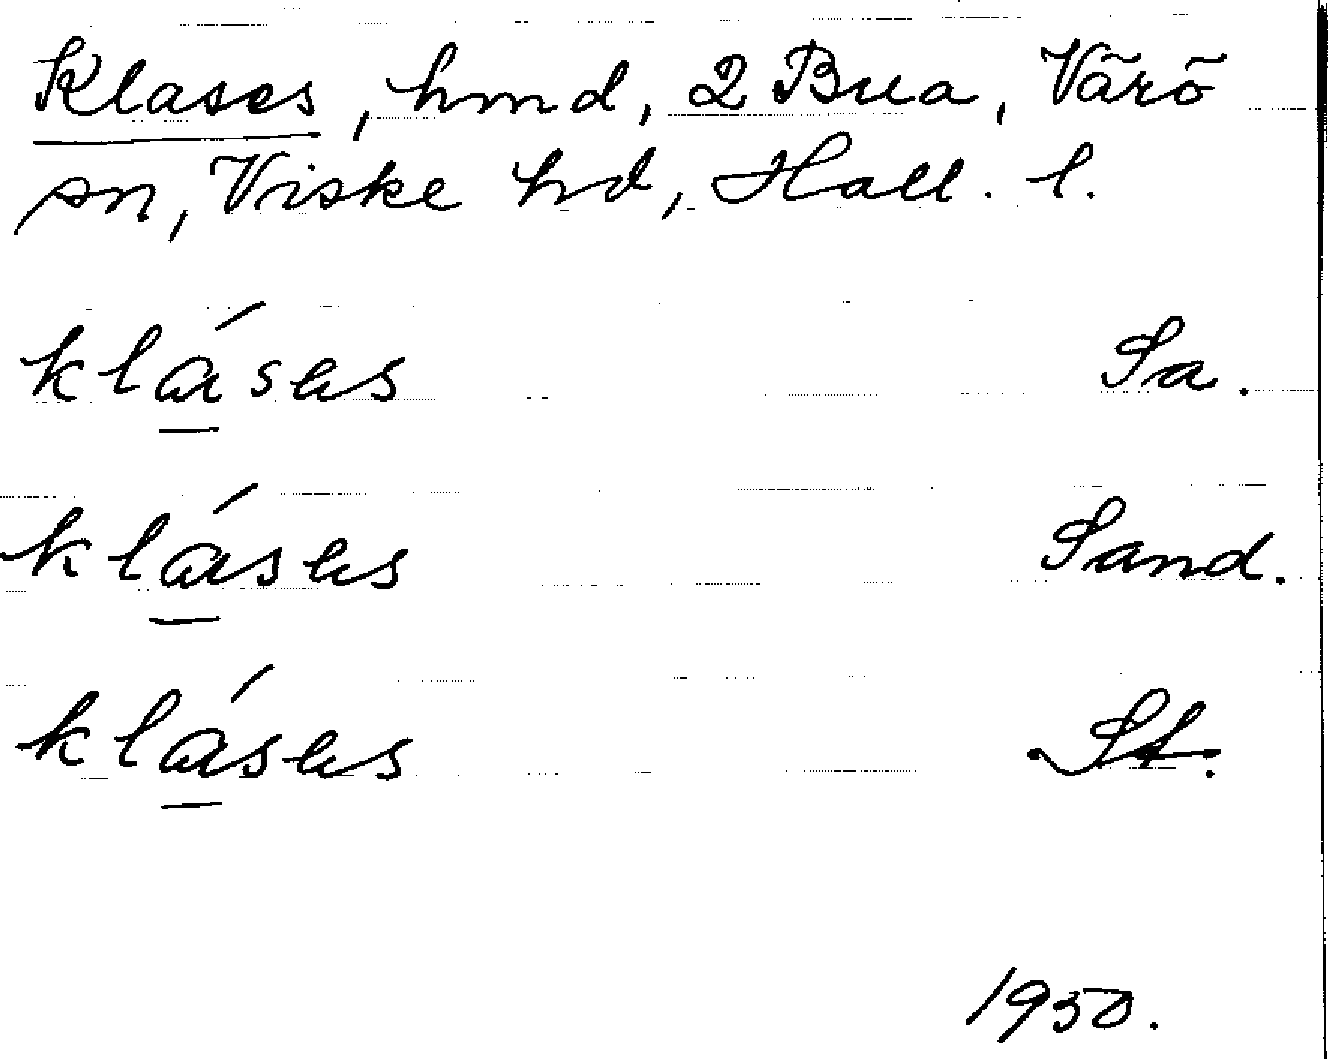 Klases, hmd, 2 Bua, Värö
sn, Viske hd, Hall. l.
klásəs Sa.
klásəs Sand.
klásəs St.
1950.